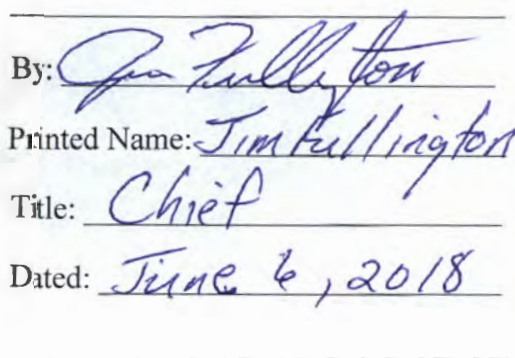 By: Jim Fullington
Printed Name: Jim Fullington
Title: Chief
Dated: June 6, 2018